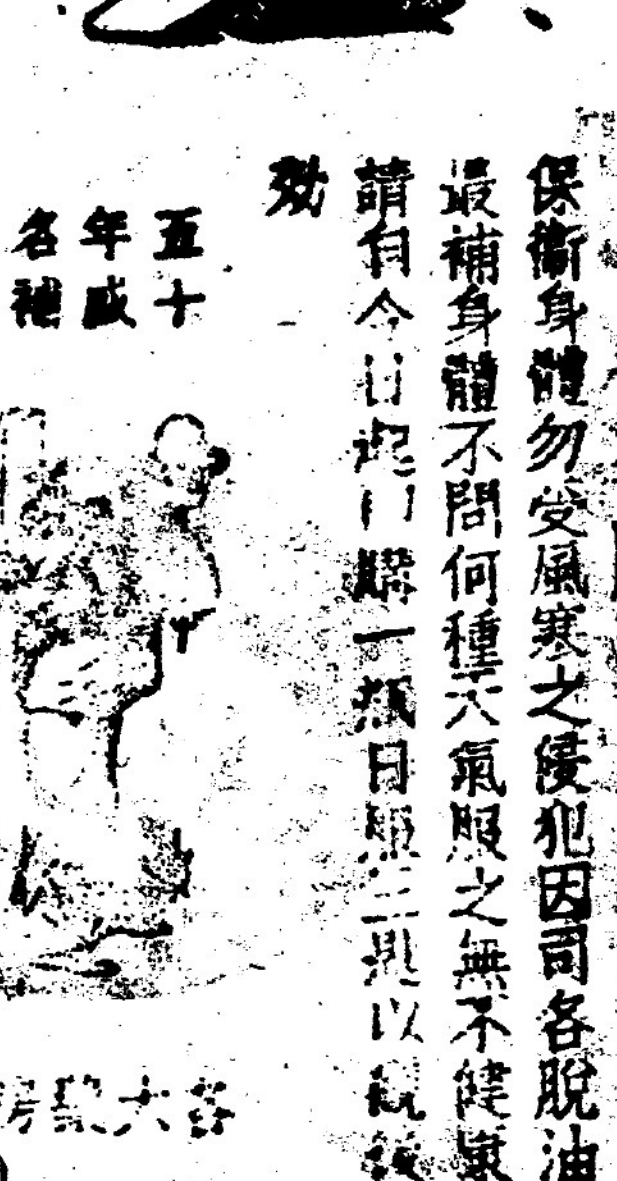 保衛身體勿受風寒之侵犯因司各脫油
最補身體不問何種天氣服之無不健康
請自今日起購一瓶日服三以觀
效
五十
年盛
名補
各大藥房